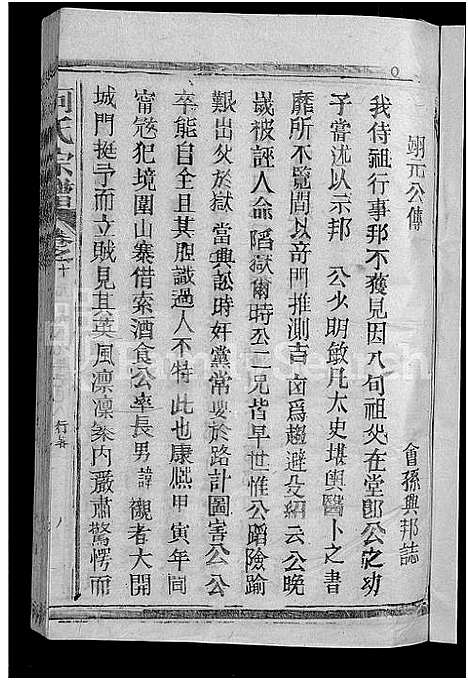 翊元公傳
會孫興邦誌
我侍祖行事邦不獲見因八旬祖父在堂即公之功
子當述以示邦 公少明敏凡太史堪輿醫卜之書
靡所不覽間以奇門推測吉凶為趨避殳紹云公晚
歲被誣人命陷獄爾時公二兄皆早世惟公蹈險踰
艱出父於獄當興訟時奸黨常要於路計圖害公公
卒能自全且其胆識過人不特此也康熈甲寅年間
甯冦犯境圍山寨借索酒食公率長男諱觀者大開
城門挺予而立賊見其英風凛凛寨内嚴肅驚愕而
何氏宗譜
卷之十
行畧